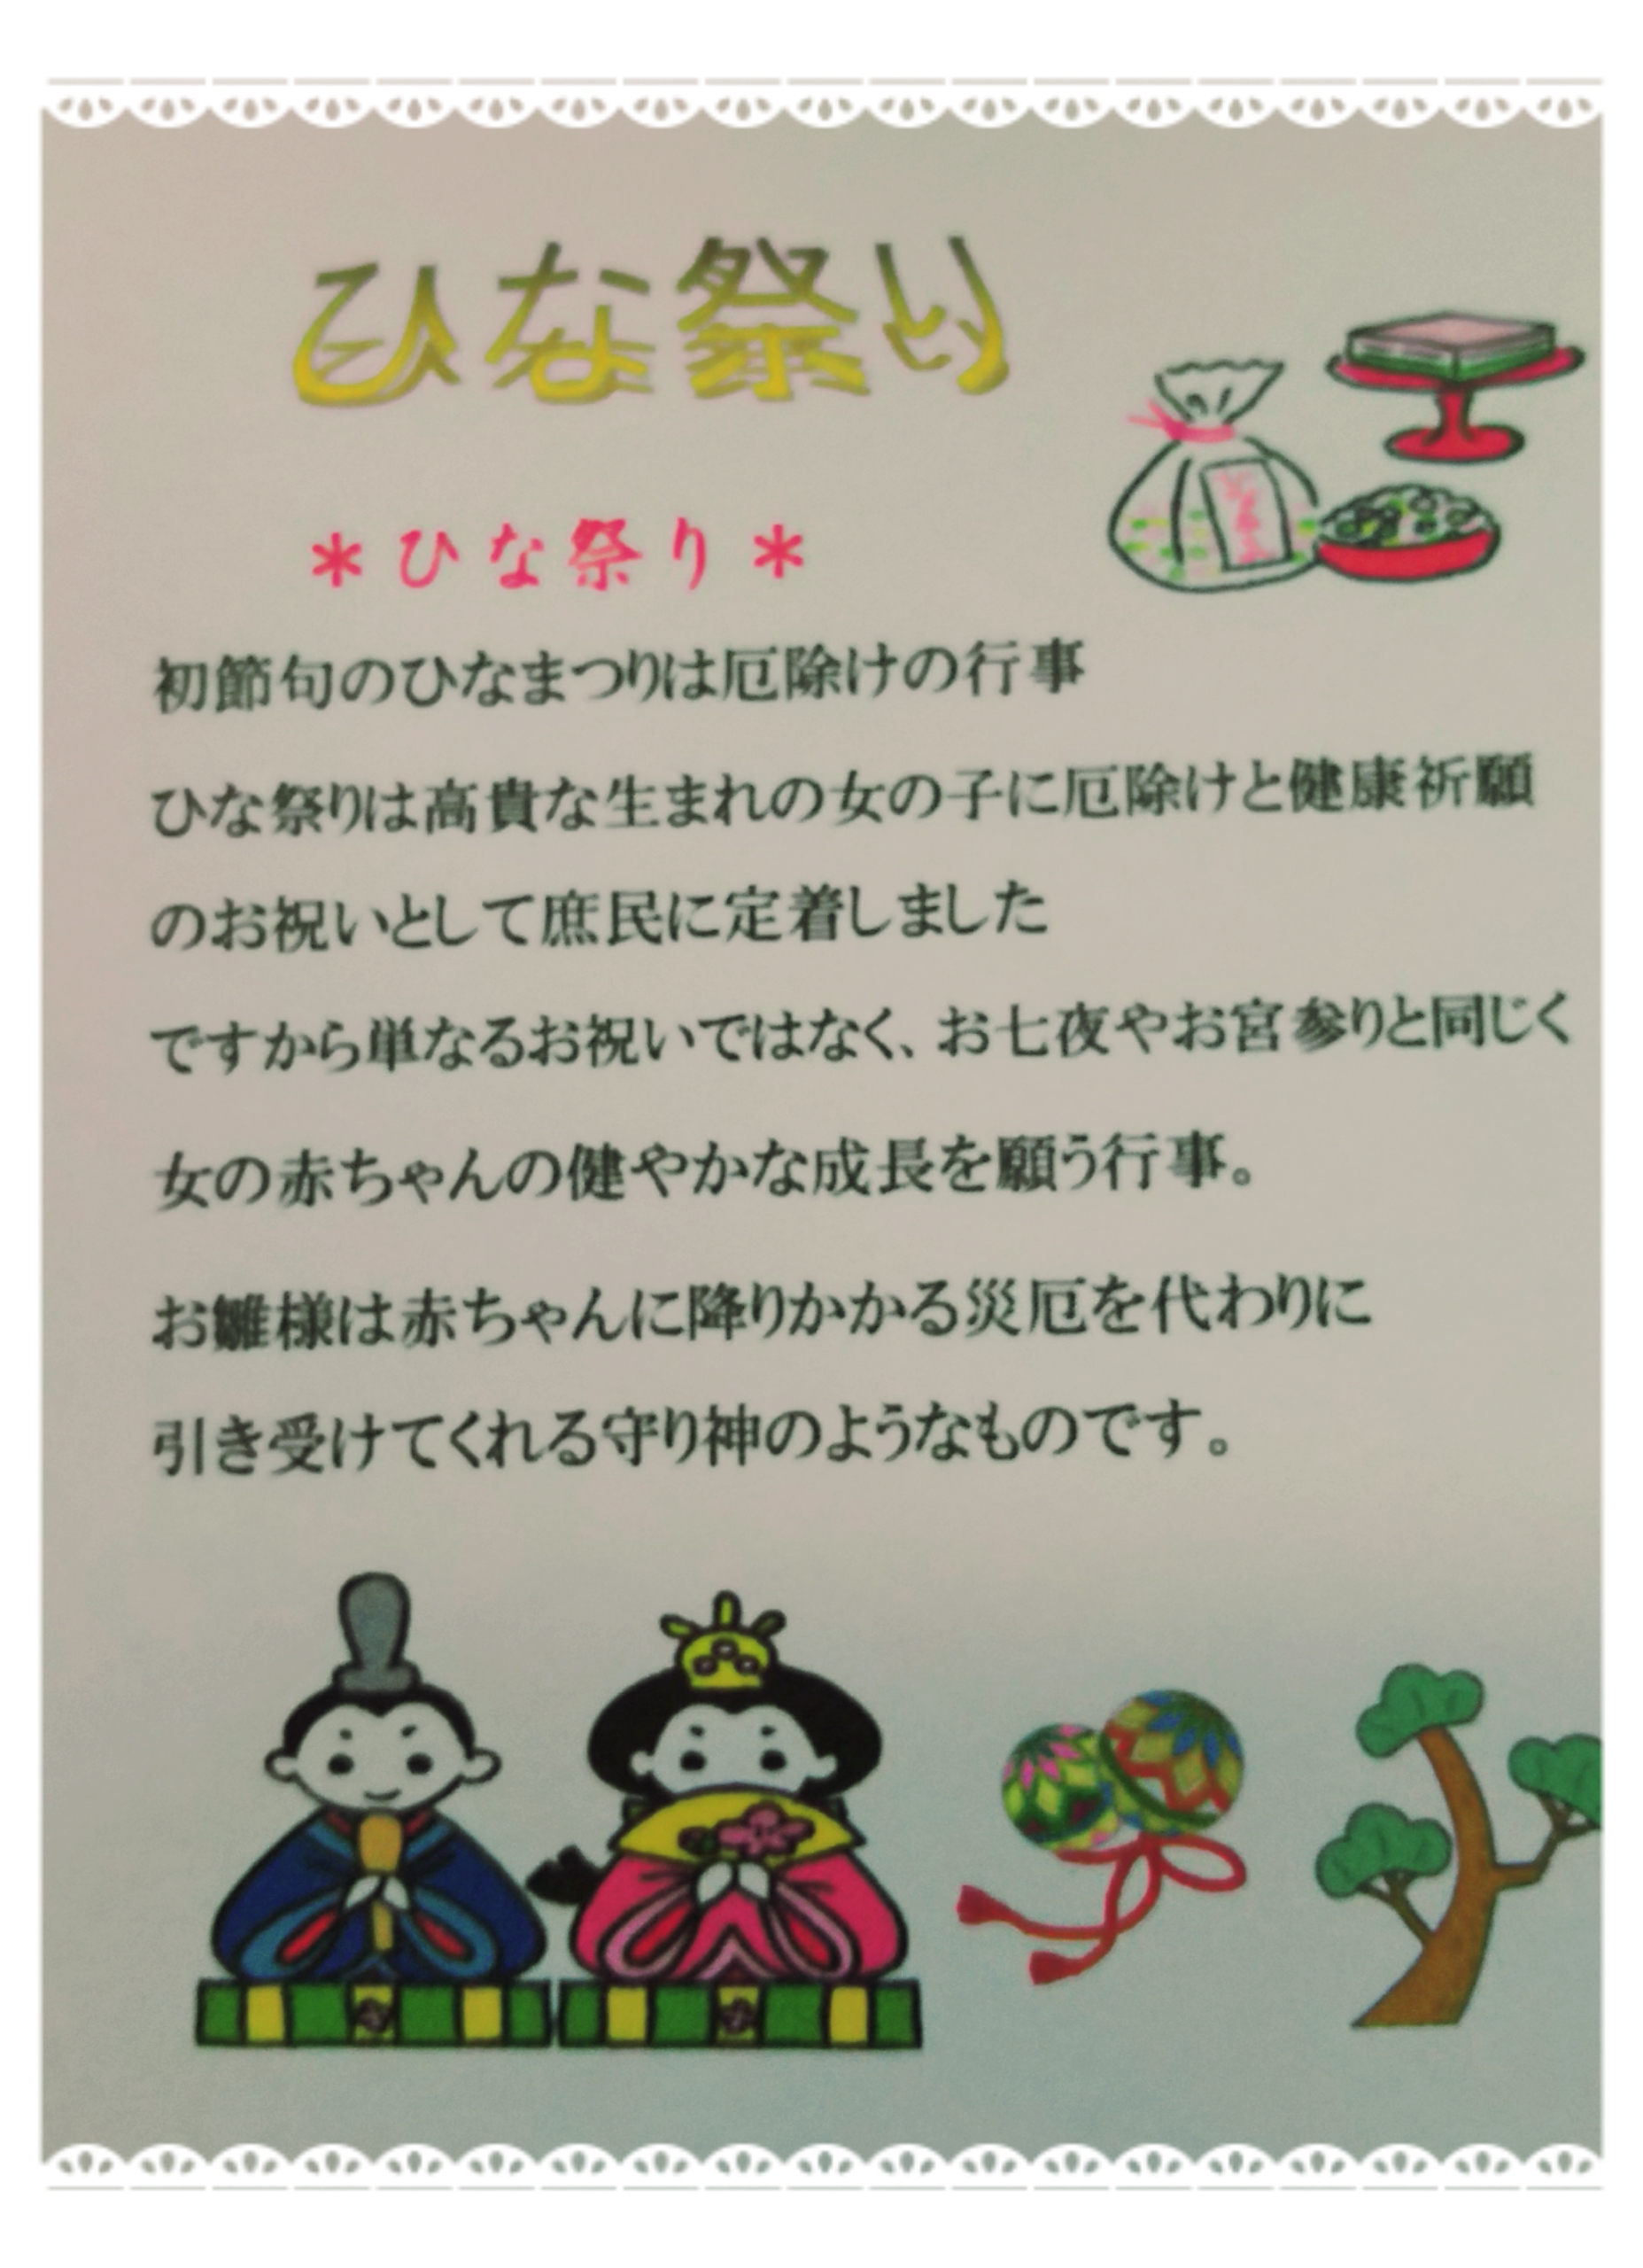 ひな祭り
＊ひな祭り＊
初節句のひなまつりは厄除けの行事
ひな祭りは高貴な生まれの女の子に厄除けと健康祈願
のお祝いとして庶民に定着しました
ですから単なるお祝いではなく、お七夜やお宮参りと同じく
女の赤ちゃんの健やかな成長を願う行事。
お雛様は赤ちゃんに降りかかる災厄を代わりに
引き受けてくれる守り神のようなものです。